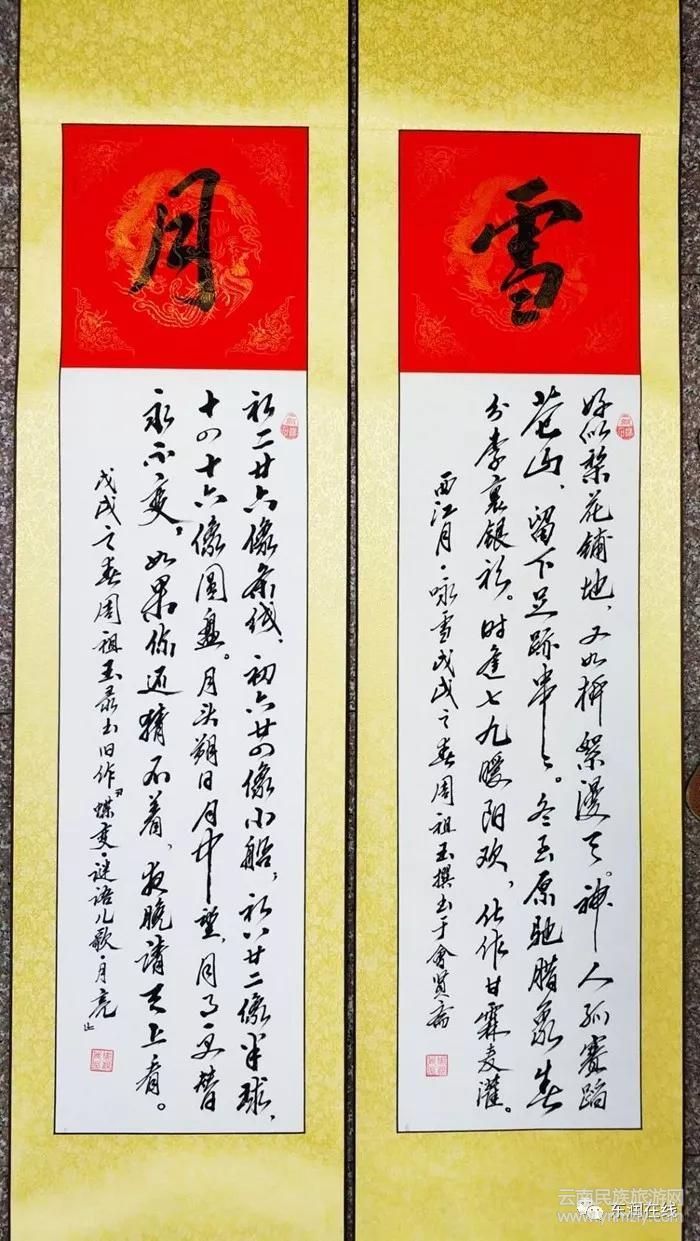 雪
好似梨花铺地，又如柳絮漫天。神人孤赛蹈
苍山，留下足跡串々。冬至原驰腊象，春
分李裹银衫。时逢七九暖阳欢，化作甘霖麦灌。
西江月·咏雪戊戌之春周祖玉撰书于會贤斋
月
初二廿六像条线，初六廿四像小船，初八廿二像半球，
十四十六像圆盘。月头朔日月中望，月月更替
永不变，如果你还猜不着，夜晚请天上看。
戊戌之春周祖玉录书旧作《蝶变·谜语儿歌·月亮》
云南民族旅游网
东润在线